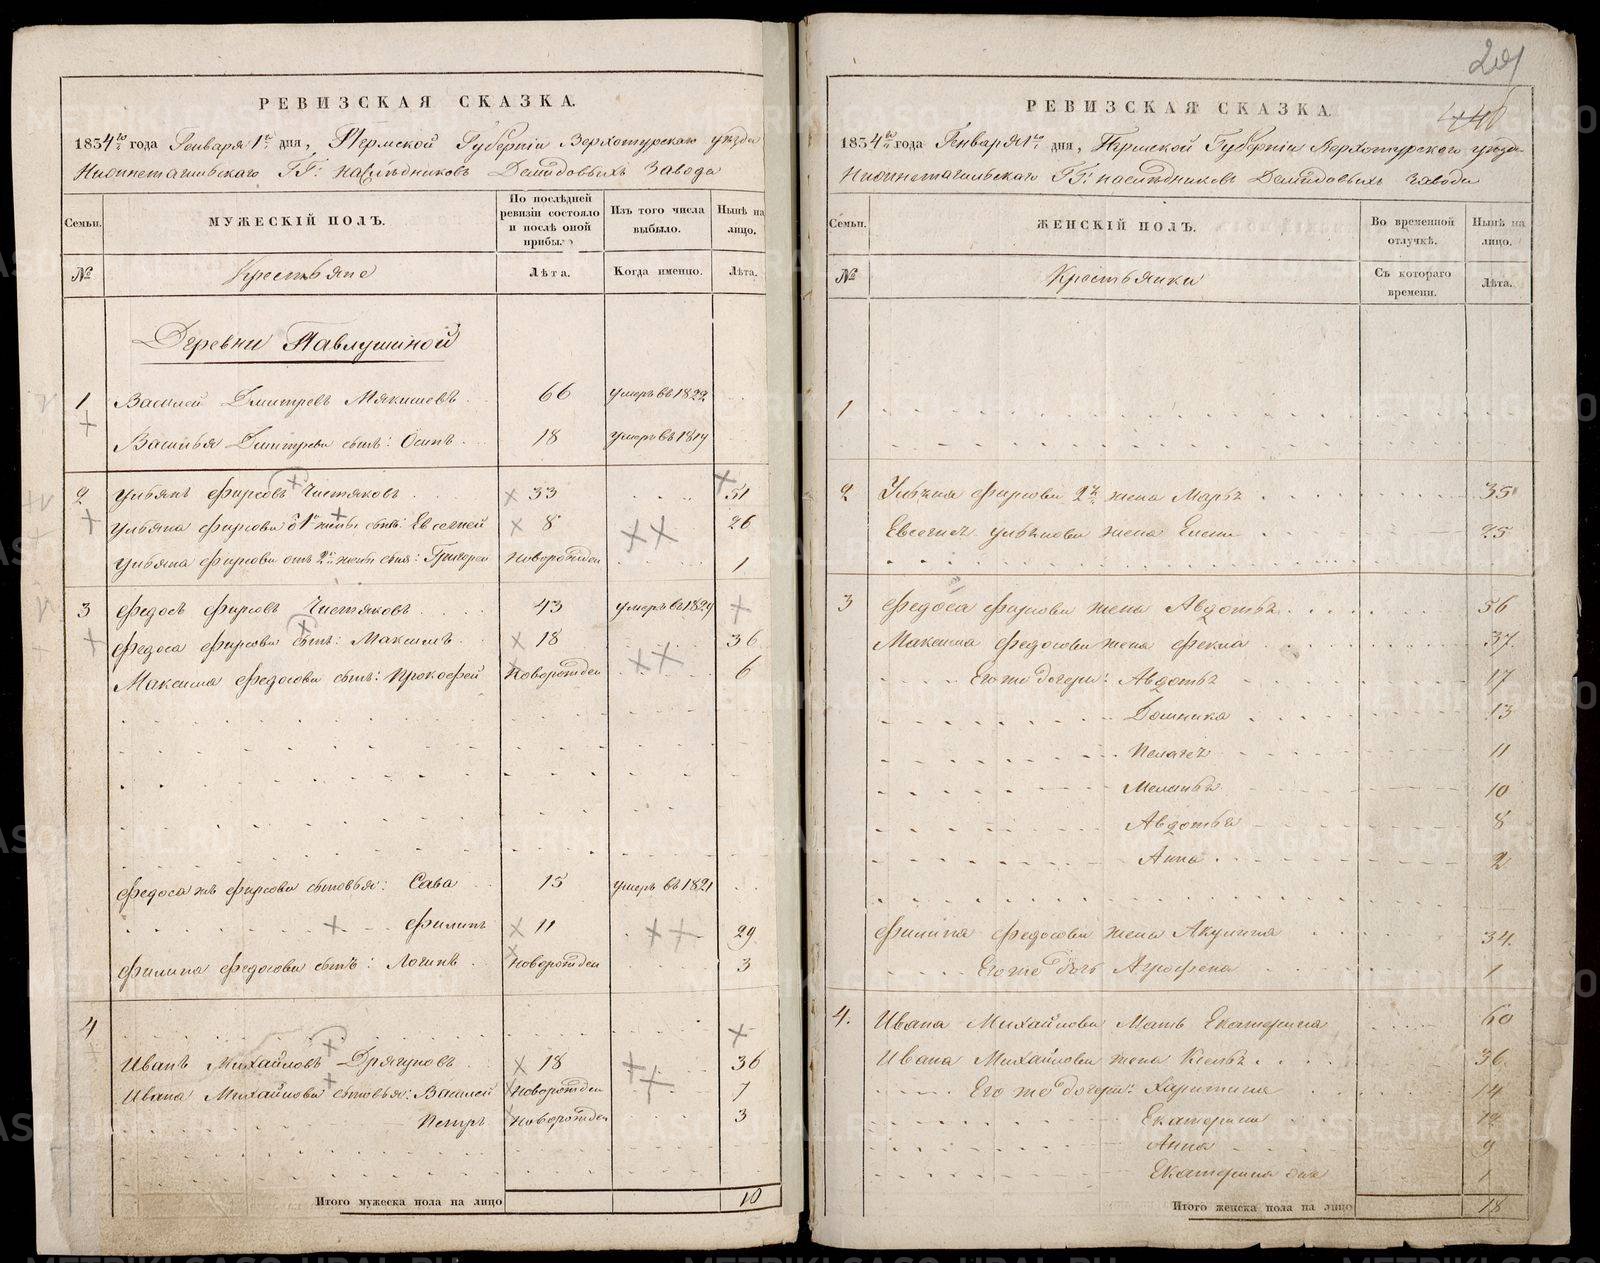 РЕВИЗСКАЯ СКАЗКА.
1834го года Генваря 1го дня, Пермской Губерніи Верхотурскаго уѣзда
Нижнетагильскаго ГГ: наслѣдниковъ Демидовыхъ Завода
Семьи.
МУЖЕСКІЙ ПОЛЪ.
По послѣдней ревизіи состояло и послѣ оной прибыло
Изъ того числа выбыло.
Нынѣ на лицо.
№
Крестьяне
Лѣта.
Когда именно.
Лѣта.
Деревни Павлушиной
1 Василей Дмитревъ Мякишевъ 66 умеръ въ 1822
Василья Дмитрева сынъ: Осипъ 18 умеръ въ 1819
2 Ульянъ Фирсовъ Чистяковъ 33 51
Ульяна Фирсова от 1й жены сынъ: Евсегней 8 26
Ульяна Фирсова отъ 2й жены сынъ: Григорей новорожден 1
3 Федосъ Фирсовъ Чистяковъ 43 умеръ въ 1829
Федоса Фирсова сынъ: Максимъ 18 36
Максима Федосова сынъ: Прокофей новорожден 6
Федоса жъ Фирсова сыновья: Сава 15 умеръ въ 1821
Филипъ 11 29
Филипа Федосова сынъ: Логинъ новорожден 3
4
Иванъ Михайловъ Дрягуновъ 18 36
Ивана Михайлова сыновья: Василей новорожден 7
Петръ новорожден 3
Итого мужеска пола на лицо 10
РЕВИЗСКАЯ СКАЗКА.
1834го года Генваря 1го дня, Пермской Губерніи Верхотурскаго уѣзда
Нижнетагильскаго ГГ: наслѣдниковъ Демидовыхъ Завода
Семьи.
ЖЕНСКІЙ ПОЛЪ.
Во временной отлучкѣ.
Нынѣ на лицо.
№
Крестьянки
Съ котораго времени.
Лѣта.
1
2 Ульяна Фирсова 2я жена Марья 35
Евсегнея Ульянова жена Елена 25
3 Федоса Фирсова жена Авдотья 56
Максима Федосова жена Фекла 37
Его же дочери: Авдотья 17
Домника 13
Пелагея 11
Меланья 10
Авдотья 8
Анна 2
Филипа Федосова жена Акулина 34
Его же дочь Агрофена 1
4. Ивана Михайлова Мать Екатерина 60
Ивана Михайлова жена 36
Его же дочери: Харитина 14
Екатерина 12
Анна 9
Екатерина 1
Итого женска пола на лицо 18
METRIKI.GASO-URAL.RU